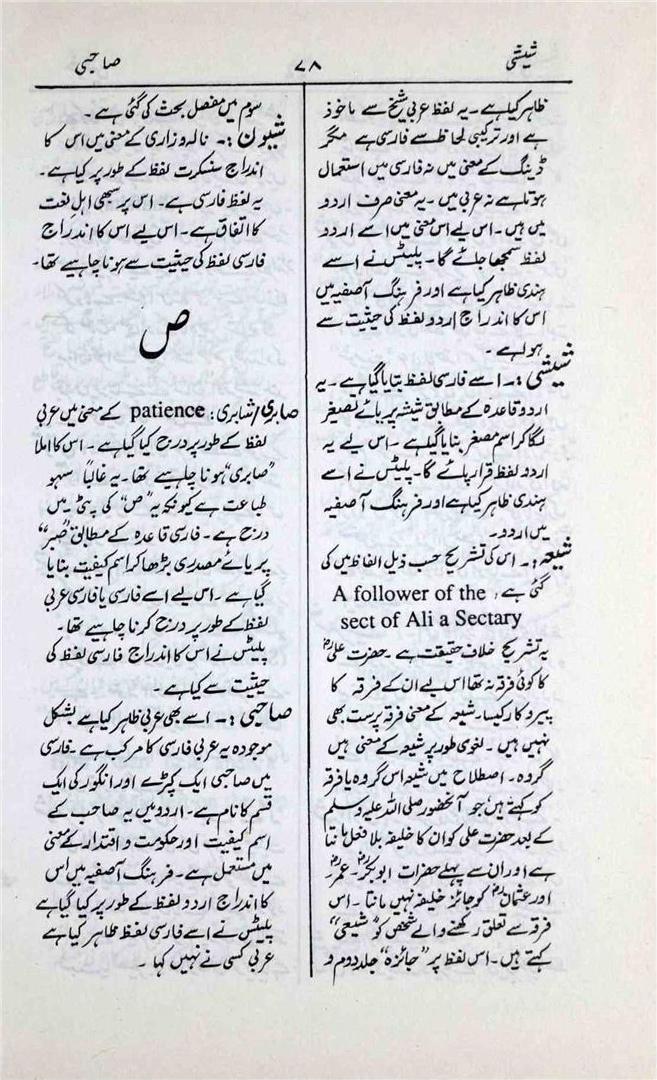 شیشی
۷۸
صاحبی
ظاہر کیا ہے۔ یہ لفظ عربی شیخ سے ماخوذ
ہے اور ترکیبی لحاظ سے فارسی ہے مگر
ڈینگ کے معنی میں نہ فارسی میں استعمال
ہوتا ہے نہ عربی میں۔ یہ معنی صرف اردو
میں ہیں۔ اس لیے اس معنی میں اسے اردو
لفظ سمجھا جائے گا۔ پلیٹس نے اسے
ہندی ظاہر کیا ہے اور فرہنگ آصفیہ میں
اس کا اندراج اردو لفظ کی حیثیت سے
ہوا ہے۔
شیشی :۔ اسے فارسی لفظ بتایا گیا ہے۔ یہ
اردو قاعدہ کے مطابق شیشہ پر یائے تصغیر
لگا کر اسم مصغر بنایا گیا ہے۔ اس لیے یہ
اردو لفظ قرار پائے گا۔ پلیٹس نے اسے
ہندی ظاہر کیا ہے اور فرہنگ آصفیہ
میں اردو۔
شیعہ :۔ اس کی تشریح حسب ذیل الفاظ میں کی
گئی ہے، A follower of the
sect of Ali a Sectary
یہ تشریح خلاف حقیقت ہے۔ حضرت علیؓ
کا کوئی فرقہ نہ تھا اس لیے ان کے فرقہ کا
پیرو کار کیسا۔ شیعہ کے معنی فرقہ پرست بھی
نہیں ہیں۔ لغوی طور پر شیعہ کے معنی ہیں
گروہ۔ اصطلاح میں شیعہ اس گروہ یا فرقہ
کو کہتے ہیں جو آنحضور صلی اللہ علیہ وسلم
کے بعد حضرت علی کو ان کا خلیفہ بلا فصل مانتا
ہے اور ان سے پہلے حضرات ابوبکرؓ۔ عمرؓ۔
اور عثمانؓ کو جائز خلیفہ نہیں مانتا۔ اس
فرقہ سے تعلق رکھنے والے شخص کو "شیعی"
کہتے ہیں۔ اس لفظ پر "جائزہ" جلد دوم و
سوم میں مفصل بحث کی گئی ہے۔
شیون :۔ نالہ و زاری کے معنی میں اس کا
اندراج سنسکرت لفظ کے طور پر کیا ہے۔
یہ لفظ فارسی ہے۔ اس پر سبھی اہل لغت
کا اتفاق ہے۔ اس لیے اس کا اندراج
فارسی لفظ کی حیثیت سے ہونا چاہیے تھا۔
ص
صابری/شابری: patience کے معنی میں عربی
لفظ کے طور پر درج کیا گیا ہے۔ اس کا املا
"صابری" ہونا چاہیے تھا۔ یہ غالباً سہو
طباعت ہے کیونکہ یہ "ص" کی پٹی میں
درج ہے۔ فارسی قاعدہ کے مطابق "صبر"
پر یائے مصدری بڑھا کر اسم کیفیت بنایا
گیا ہے۔ اس لیے اسے فارسی یا فارسی عربی
لفظ کے طور پر درج کرنا چاہیے تھا۔
پلیٹس نے اس کا اندراج فارسی لفظ کی
حیثیت سے کیا ہے۔
صاحبی :۔ اسے بھی عربی ظاہر کیا ہے بشکل
موجودہ یہ عربی فارسی کا مرکب ہے۔ فارسی
میں صاحبی ایک کپڑے اور انگور کی ایک
قسم کا نام ہے۔ اردو میں یہ صاحب کے
اسم کیفیت اور حکومت و اقتدار کے معنی
میں مستعمل ہے۔ فرہنگ آصفیہ میں اس
کا اندراج اردو لفظ کے طور پر کیا گیا ہے
پلیٹس نے اسے فارسی لفظ ظاہر کیا ہے
عربی کسی نے نہیں کہا۔